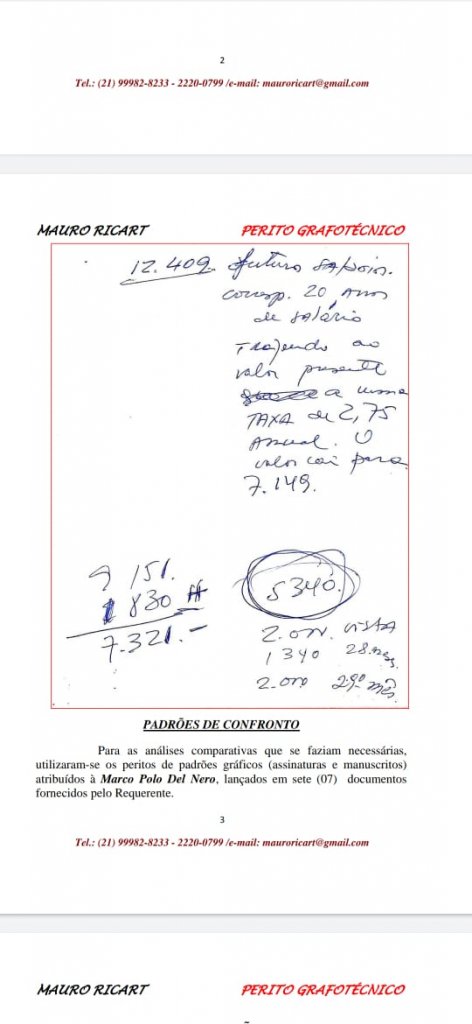 2
Tel.: (21) 99982-8233 - 2220-0799 /e-mail: mauroricart@gmail.com
MAURO RICART PERITO GRAFOTÉCNICO
12.409 futuro
corresp. 20 anos
de salário
Trazendo ao
valor presente
a uma
TAXA de 2,75
Anual. O
valor cai para
7.149.
9 151.
1 830
7.321.-
5340.
2.000. VISTA
1 340 28
2.000 29º mês.
PADRÕES DE CONFRONTO
Para as análises comparativas que se faziam necessárias,
utilizaram-se os peritos de padrões gráficos (assinaturas e manuscritos)
atribuídos à Marco Polo Del Nero, lançados em sete (07) documentos
fornecidos pelo Requerente.
3
Tel.: (21) 99982-8233 - 2220-0799 /e-mail: mauroricart@gmail.com
MAURO RICART PERITO GRAFOTÉCNICO